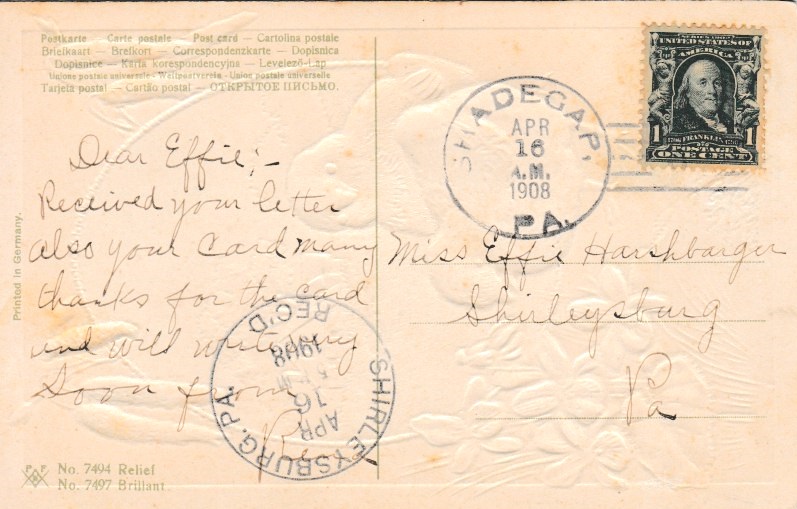 Postkarte — Carte postale — Post card — Cartolina postale
Briefkaart — Brefkort — Correspondenzkarte — Dopisnica
Dopisnice — Karta korespondencyjna — Levelező-Lap
Unione postale universale - Weltpostverein - Union postale universelle
Tarjeta postal — Cartão postal — ОТКРЫТОЕ ПИСЬМО.
Dear Effie;-
Received your letter
also your card many
thanks for the card
and will write
soon from
Printed in Germany.
No. 7494 Relief
No. 7497 Brillant
SHIRLEYSBURG, PA.
APR
16
1908
REC'D
SHADEGAP,
APR
16
A.M.
1908
PA.
SERIES 1902
UNITED STATES OF
AMERICA
1 1
1706 FRANKLIN 1790
POSTAGE
ONE CENT
Miss Effie Harshbarger
Shirleysburg
Pa